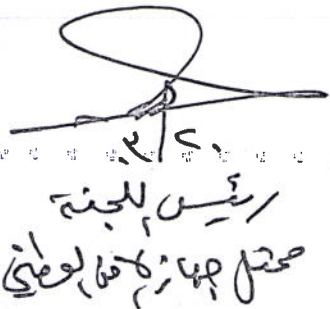 ٣/٢٠
رئيس اللجنة
ممثل جهاز الامن الوطني